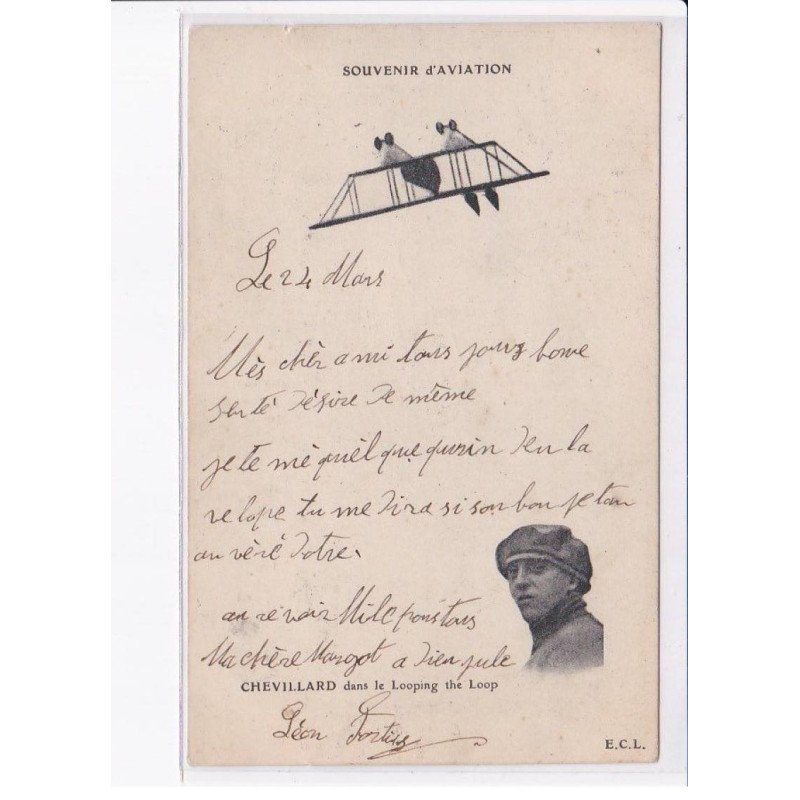 SOUVENIR d'AVIATION
Le 24 Mars
Mès chèr ami tous jours bone
senté désire de même
je te mè quèl que qurin den la
velope tu me dira si son bon je ton
an vèré dotre.
au revoir
Ma chère Margot a dieu jule
CHEVILLARD dans le Looping the Loop
Léon
E.C.L.